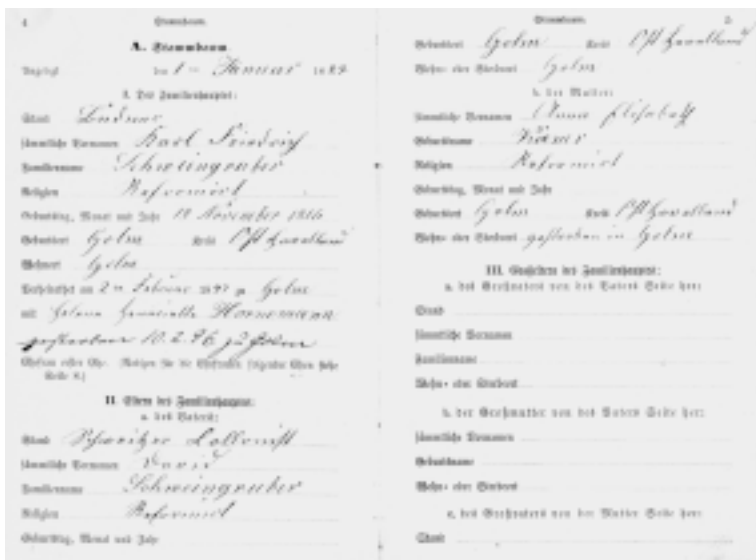 4 Stammbaum.
A. Stammbaum
Angelegt den 1 ten Januar
I. Des Familienhauptes:
Stand Büdner
sämmtliche Vornamen Karl Friedrich
Familienname Schweingruber
Religion Reformirt
Geburtstag, Monat und Jahr November
Geburtsort Golm Kreis Ost Havelland
Wohnort Golm
Verheirathet am 2 ten Februar zu Golm
mit Helene Henriette Hornemann
gestorben 10.2.96 zu Golm
II. Eltern des Familienhauptes:
a. des Vaters:
Stand Schweitzer Collonist
sämmtliche Vornamen David
Familienname Schweingruber
Religion Reformirt
Geburtstag, Monat und Jahr
Stammbaum. 5
Geburtsort Golm Kreis Ost Havelland
Wohn- oder Sterbeort Golm
b. der Mutter:
sämmtliche Vornamen Anna Elisabeth
Geburtsname
Religion Reformirt
Geburtstag, Monat und Jahr
Geburtsort Golm Kreis Ost Havelland
Wohn- oder Sterbeort gestorben in Golm
III. Großeltern des Familienhauptes:
a. des Großvaters von des Vaters Seite her:
Stand
sämmtliche Vornamen
Familienname
Wohn- oder Sterbeort
b. der Großmutter von des Vaters Seite her:
sämmtliche Vornamen
Geburtsname
Wohn- oder Sterbeort
c. des Großvaters von der Mutter Seite her:
Stand